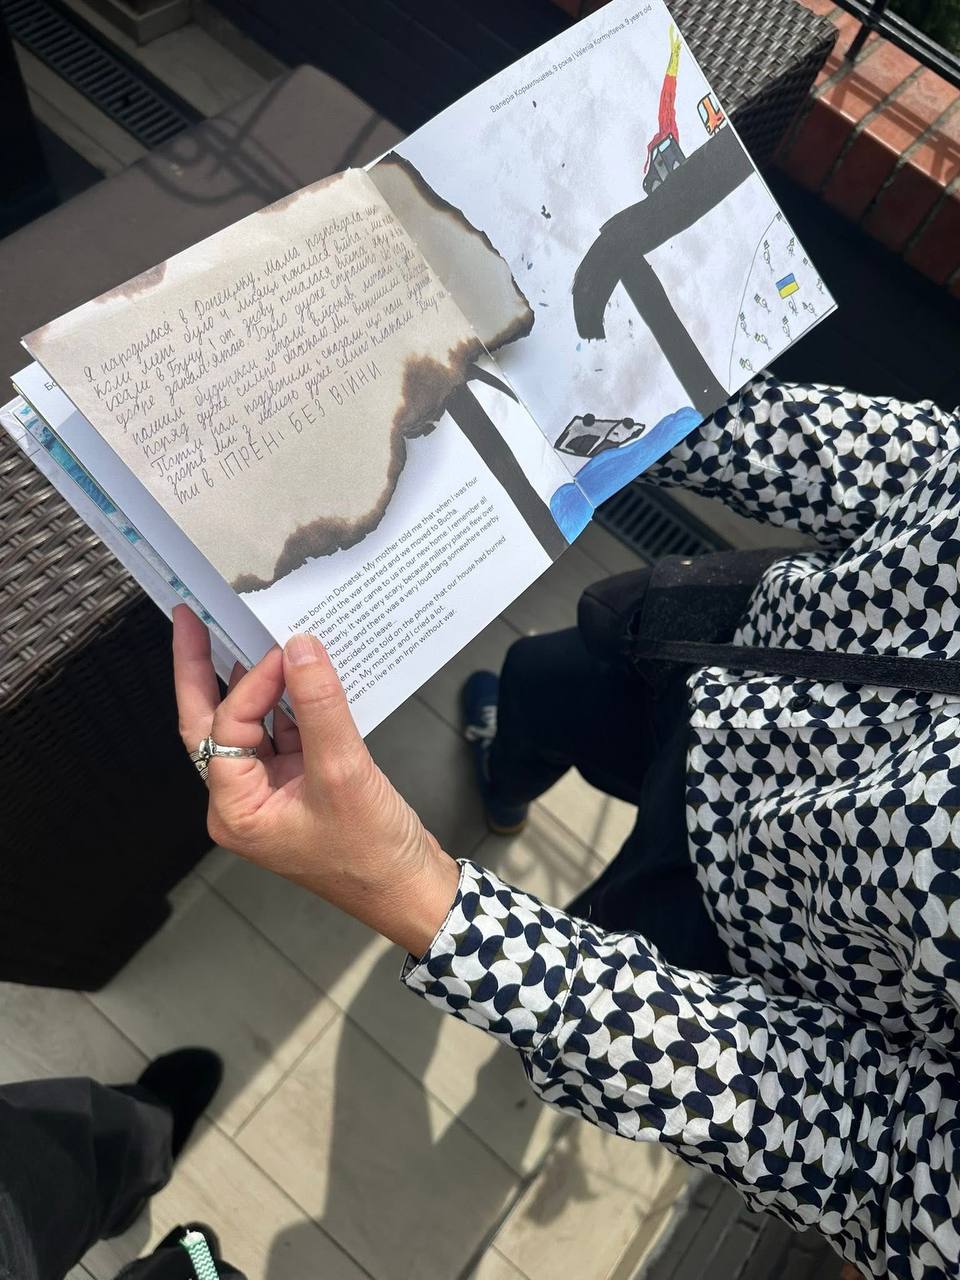 Валерія Кормильцева, 9 років | Valeriia Kormyltseva, 9 years old
Я народилася в Донецьку. Мама розповдала, що
коли мені було 4 місяці почалася війна, і ми пере
їхали в Бучу. І от знову почалася війна, яку я
добре запам'ятаю. Було дуже страшно, бо над
нашим будинком літали військові літаки і дуже
поряд дуже сильно бахнуло. Ми вирішили виїхати
Потім нам подзвонили і сказали, що наш будинок
згорів. Ми з мамою дуже сильно плакали. Хочу жи
ти в ІРПЕНІ БЕЗ ВІЙНИ
Бо
I was born in Donetsk. My mother told me that when I was four
months old the war started and we moved to Bucha.
then the war came to us in our new home. I remember all
clearly. It was very scary, because military planes flew over
house and there was a very loud bang somewhere nearby.
decided to leave...
en we were told on the phone that our house had burned
own. My mother and I cried a lot.
want to live in an Irpin without war.